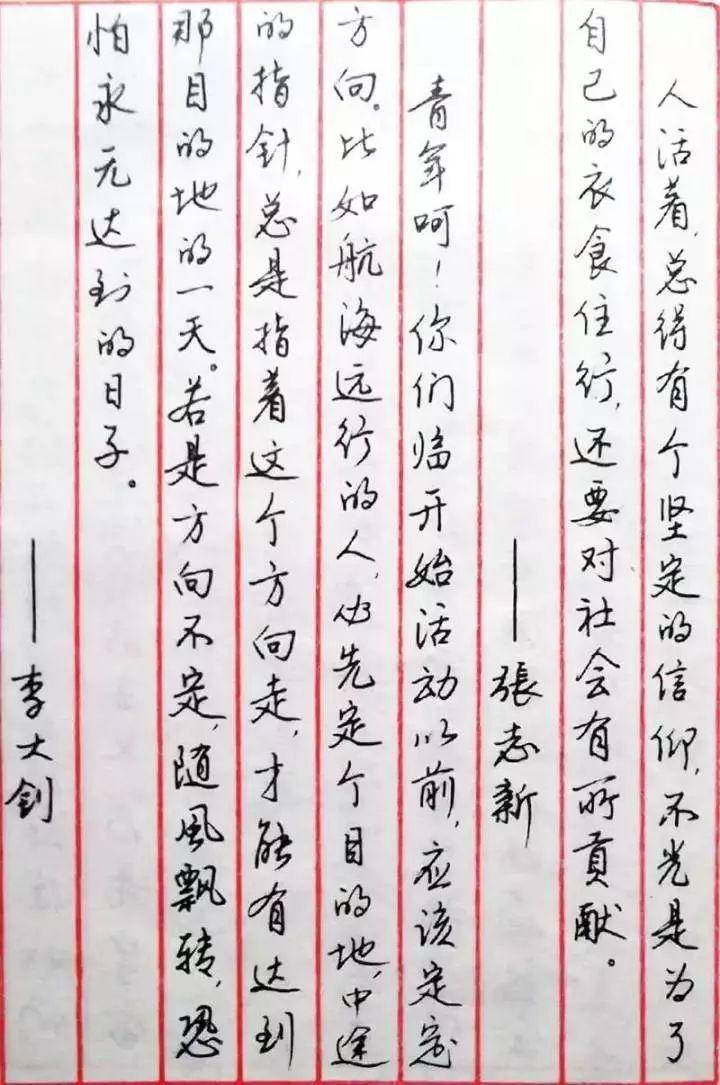 人活着,总得有个坚定的信仰,不光是为了
自己的衣食住行,还要对社会有所贡献。
——張志新
青年呵!你们临开始活动以前,应该定定
方向。比如航海远行的人,必先定个目的地,中途
的指针,总是指着这个方向走,才能有达到
那目的地的一天。若是方向不定,随風飘转,恐
怕永无达到的日子。
——李大钊